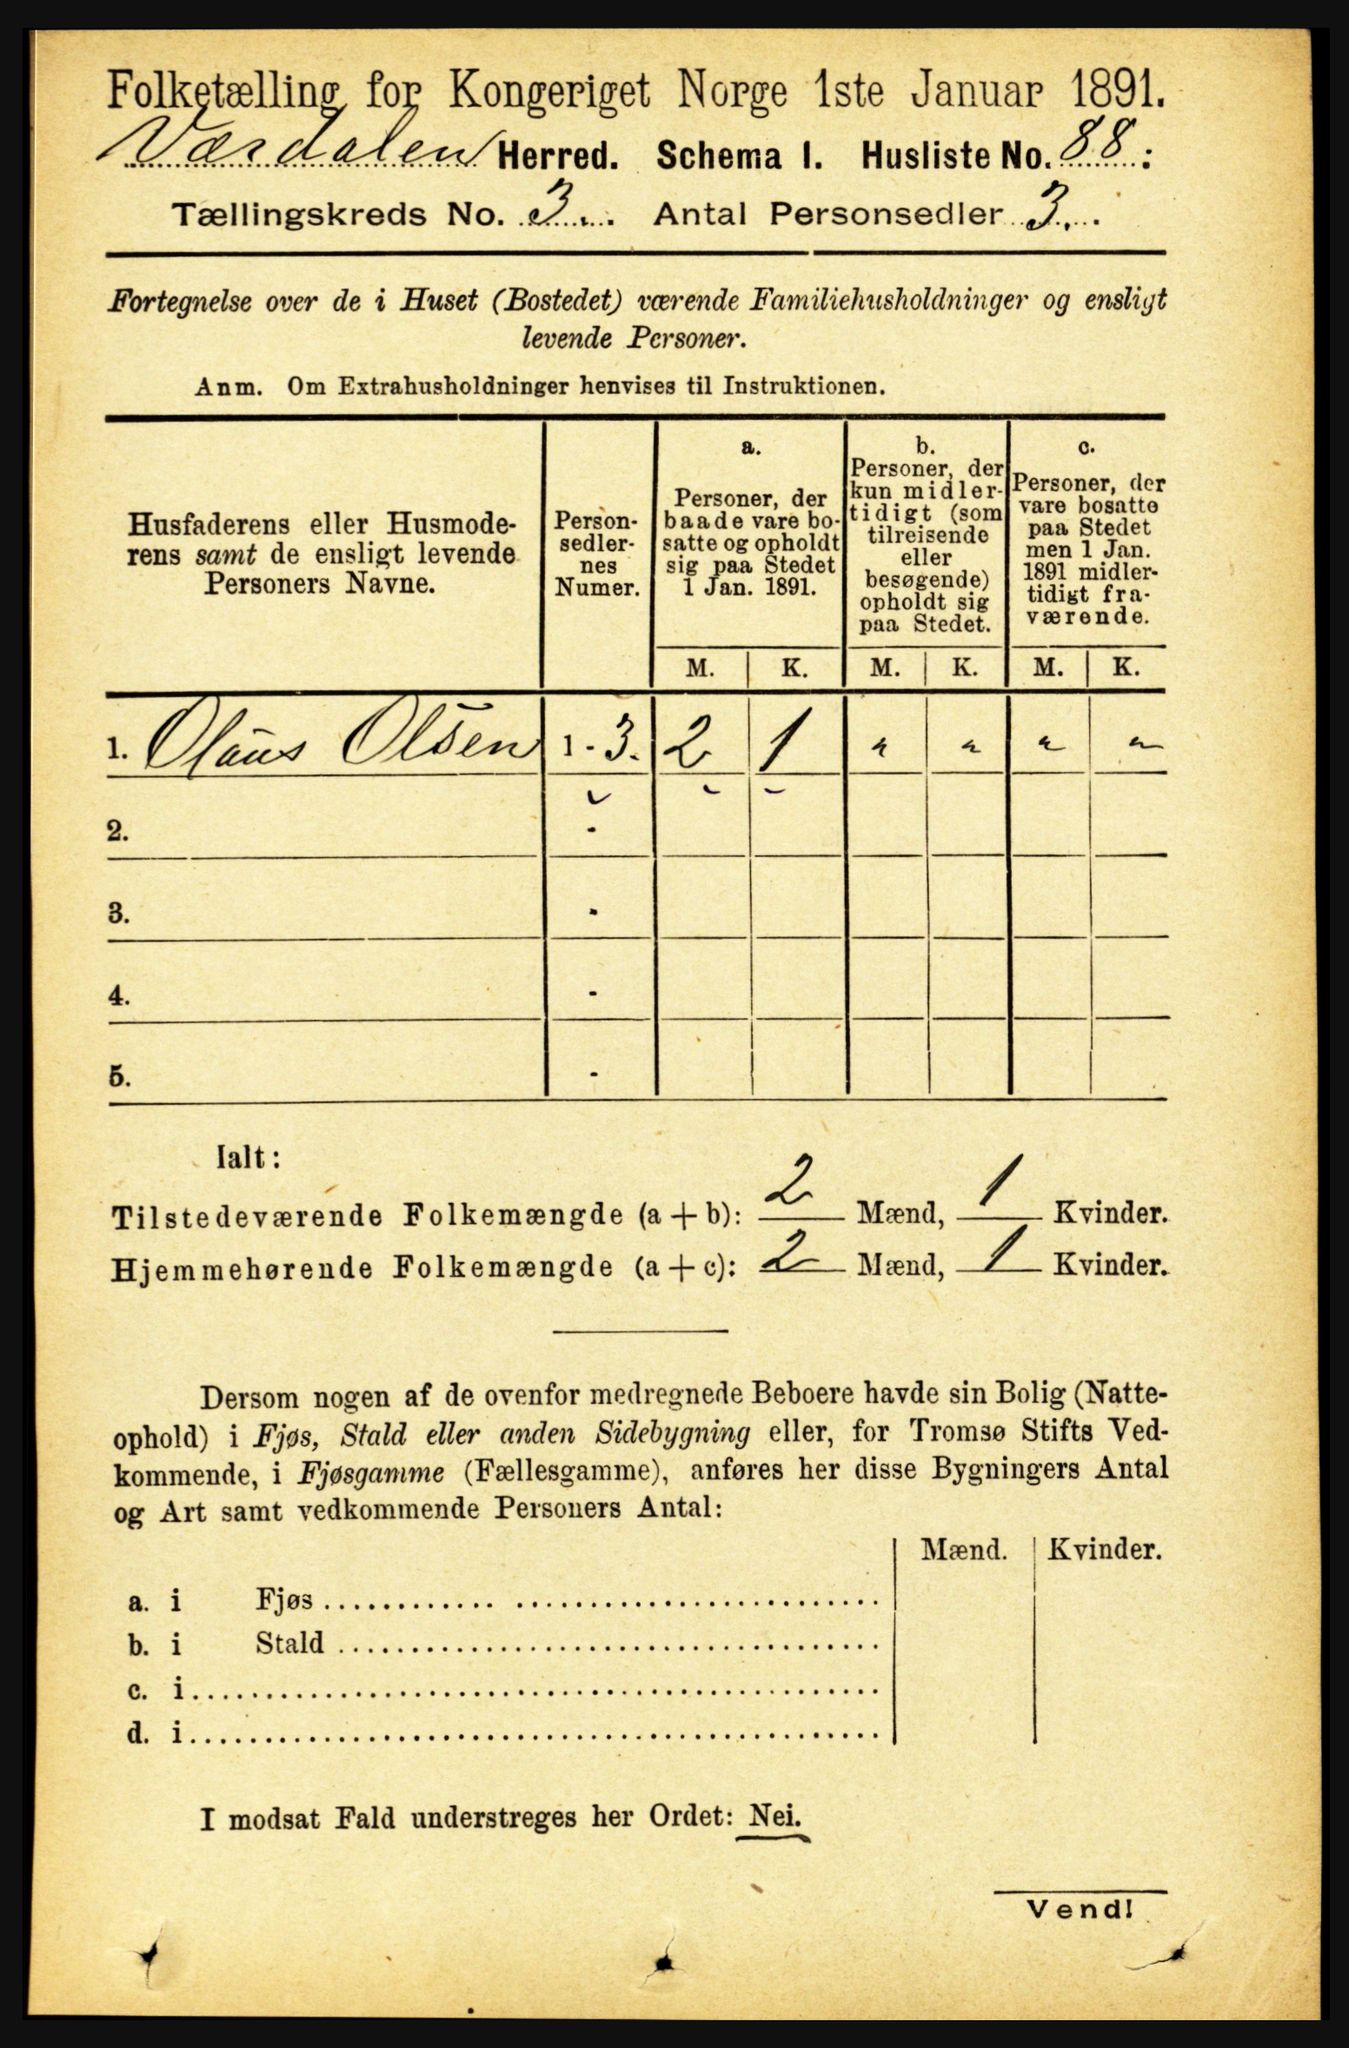 Folketælling for Kongeriget Norge 1ste Januar 1891.
Værdalen Herred. Schema I. Husliste No. 88:
Tællingskreds No. 3. Antal Personsedler 3.
Fortegnelse over de i Huset (Bostedet) værende Familiehusholdninger og ensligt
levende Personer.
Anm. Om Extrahusholdninger henvises til Instruktionen.
Husfaderens eller Husmode-
rens samt de ensligt levende
Personers Navne.
Person-
sedler-
nes
Numer.
a.
Personer, der
baade vare bo-
satte og opholdt
sig paa Stedet
1 Jan. 1891.
b.
Personer, der
kun midler-
tidigt (som
tilreisende
eller
besøgende)
opholdt sig
paa Stedet.
c.
Personer, der
vare bosatte
paa Stedet
men 1 Jan.
1891 midler-
tidigt fra-
værende.
M. K. M. K. M. K.
1. Olaus Olsen 1 - 3. 2 1 „ „ „ „
2. -
3. -
4. -
5. -
Ialt:
Tilstedeværende Folkemængde (a + b): 2 Mænd, 1 Kvinder.
Hjemmehørende Folkemængde (a + c): 2 Mænd, 1 Kvinder.
Dersom nogen af de ovenfor medregnede Beboere havde sin Bolig (Natte-
ophold) i Fjøs, Stald eller anden Sidebygning eller, for Tromsø Stifts Ved-
kommende, i Fjøsgamme (Fællesgamme), anføres her disse Bygningers Antal
og Art samt vedkommende Personers Antal:
Mænd. Kvinder.
a. i Fjøs
b. i Stald
c. i
d. i
I modsat Fald understreges her Ordet: Nei.
Vend!